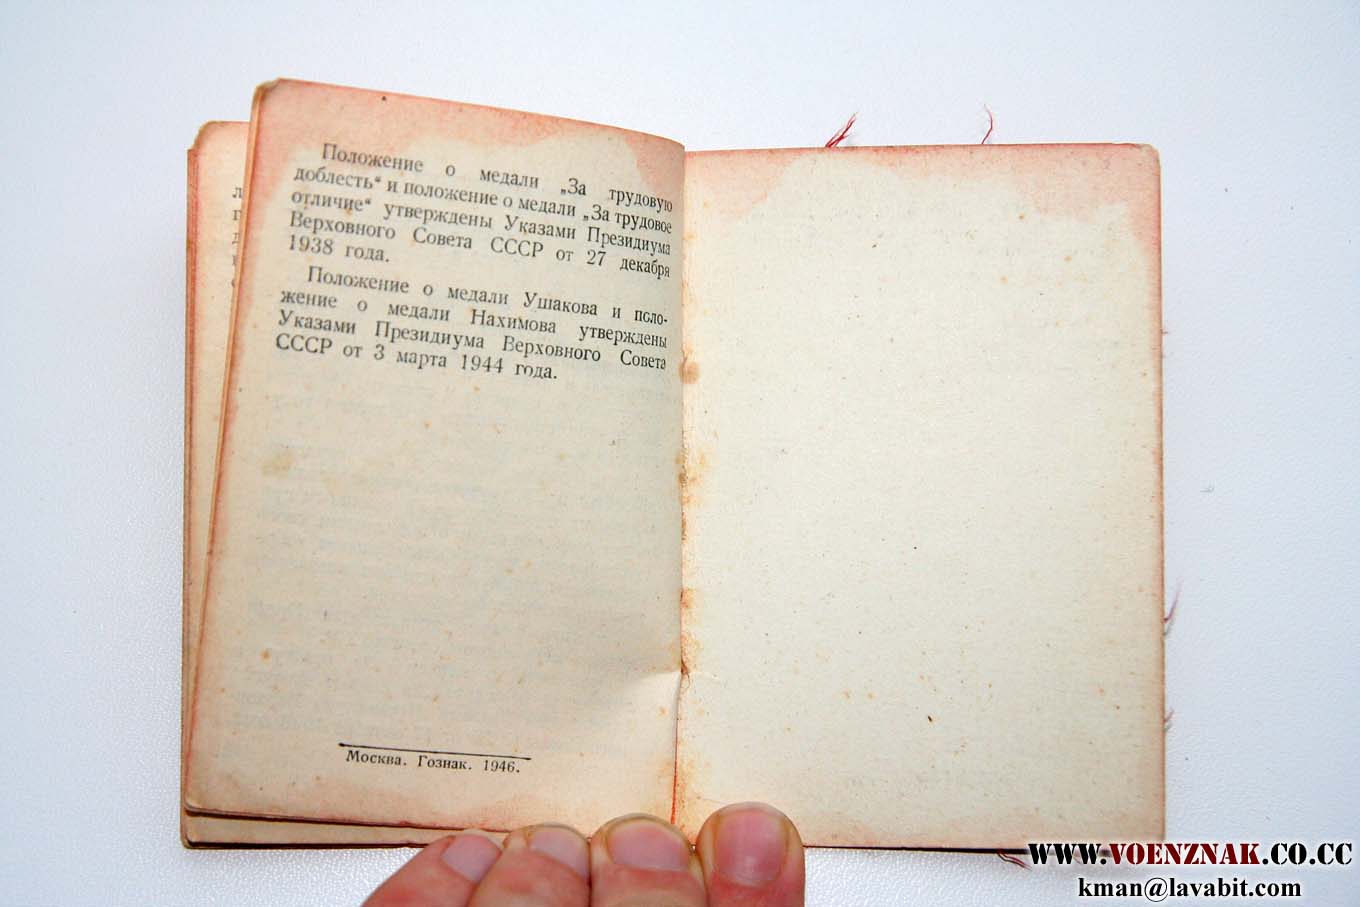 Положение о медали „За трудовую
доблесть“ и положение о медали „За трудовое
отличие“ утверждены Указами Президиума
Верховного Совета СССР от 27 декабря
1938 года.
Положение о медали Ушакова и поло-
жение о медали Нахимова утверждены
Указами Президиума Верховного Совета
СССР от 3 марта 1944 года.
Москва. Гознак. 1946.
WWW.VOENZNAK.CO.CC
kman@lavabit.com